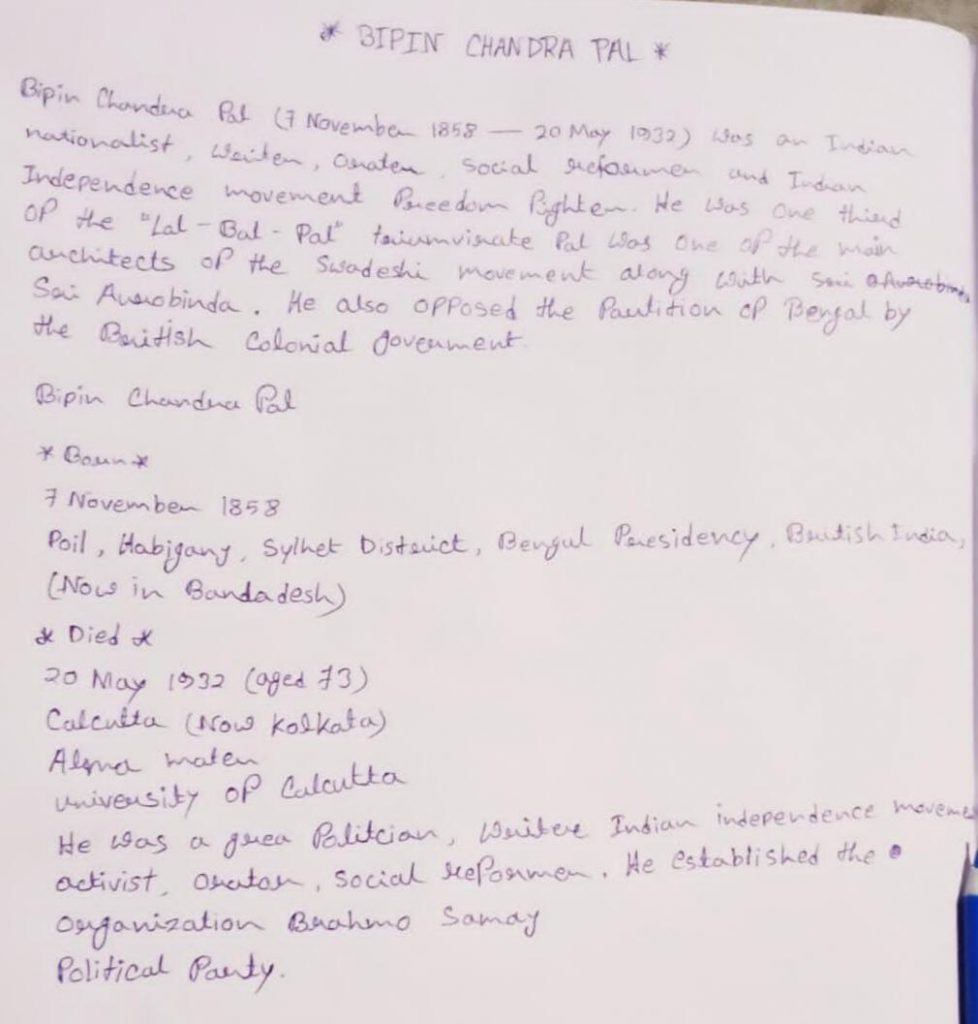 * BIPIN CHANDRA PAL *
Bipin Chandra Pal (7 November 1858 — 20 May 1932) was an Indian
nationalist, writer, orater, social reformer and Indian
Independence movement freedom fighter. He was one third
of the "Lal - Bal - Pal" triumvirate Pal was one of the main
architects of the Swadeshi movement along with Sri
Sri Aurobinda. He also opposed the Partition of Bengal by
the British Colonial goverment.
Bipin Chandra Pal
* Born *
7 November 1858
Poil, Habiganj, Sylhet District, Bengal Presidency, British India,
(Now in Bandadesh)
* Died *
20 May 1932 (aged 73)
Calcutta (Now Kolkata)
Alma mater
University of Calcutta
He was a grea Politcian, Indian independence moveme
activist, orator, social reformer. He established the
Organization Brahmo Samaj
Political Party.